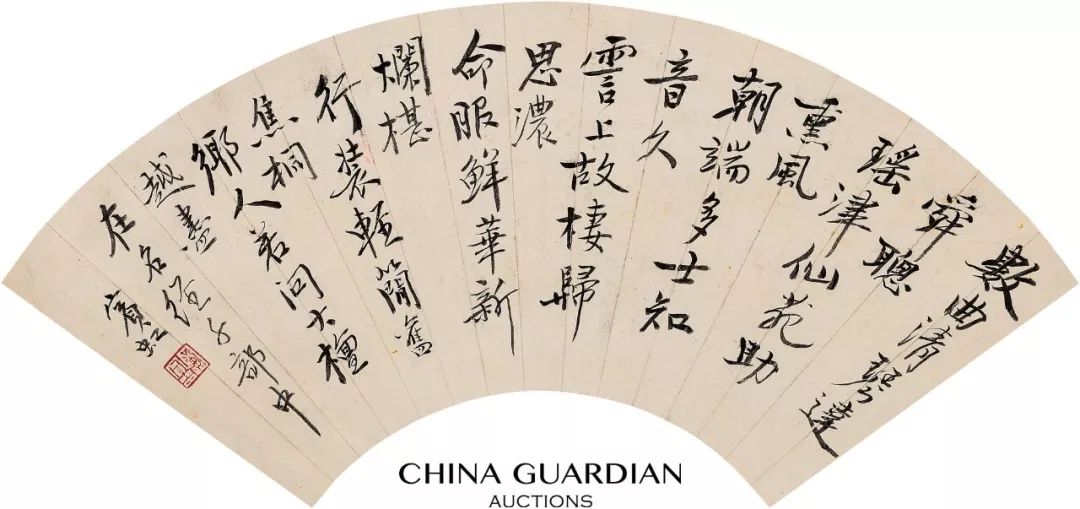 數曲清琴達
舜聰
瑤津仙苑助
熏風
朝端多士知
音久
雲上故棲歸
思濃
命服鮮華新
爛椹
行裝輕簡舊
焦桐
鄉人若問大檀
越盡
在名經子部中
賓虹
CHINA GUARDIAN
AUCTIONS